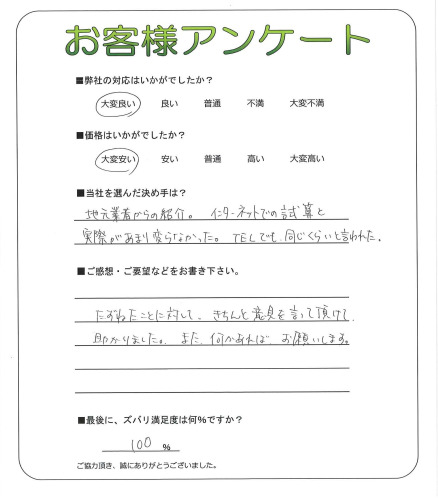 お客様アンケート
■弊社の対応はいかがでしたか?
大変良い 良い 普通 不満 大変不満
■価格はいかがでしたか?
大変安い 安い 普通 高い 大変高い
■当社を選んだ決め手は?
地元業者からの紹介。 インターネットでの試算と
実際があまり変らなかった。 TELでも、同じくらいと言われた。
■ご感想・ご要望などをお書き下さい。
たずねたことに対して、きちんと意見を言って頂けて
助かりました。また、何かあれば、お願いします。
■最後に、ズバリ満足度は何%ですか?
100 %
ご協力頂き、誠にありがとうございました。